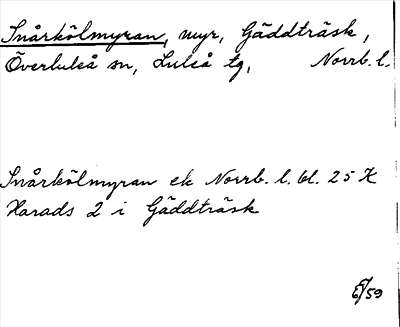 Snårkölmyran, myr, Gäddträsk,
Överluleå sn, Luleå tg, Norrb. l.
Snårkölmyran ek Norrb. l. bl. 25 K
Harads 2 i Gäddträsk
59